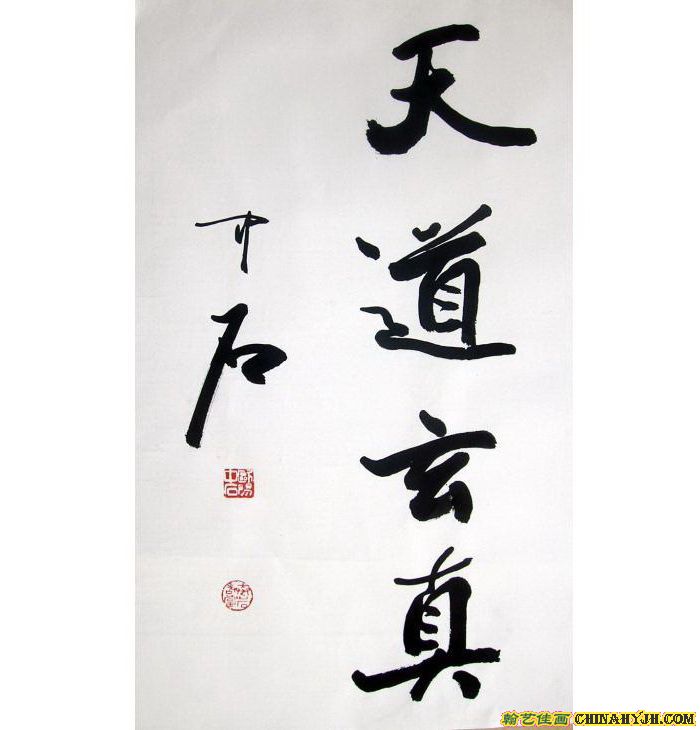 天道玄真
中石
欧阳中石
翰艺佳画 CHINAHYJH.COM